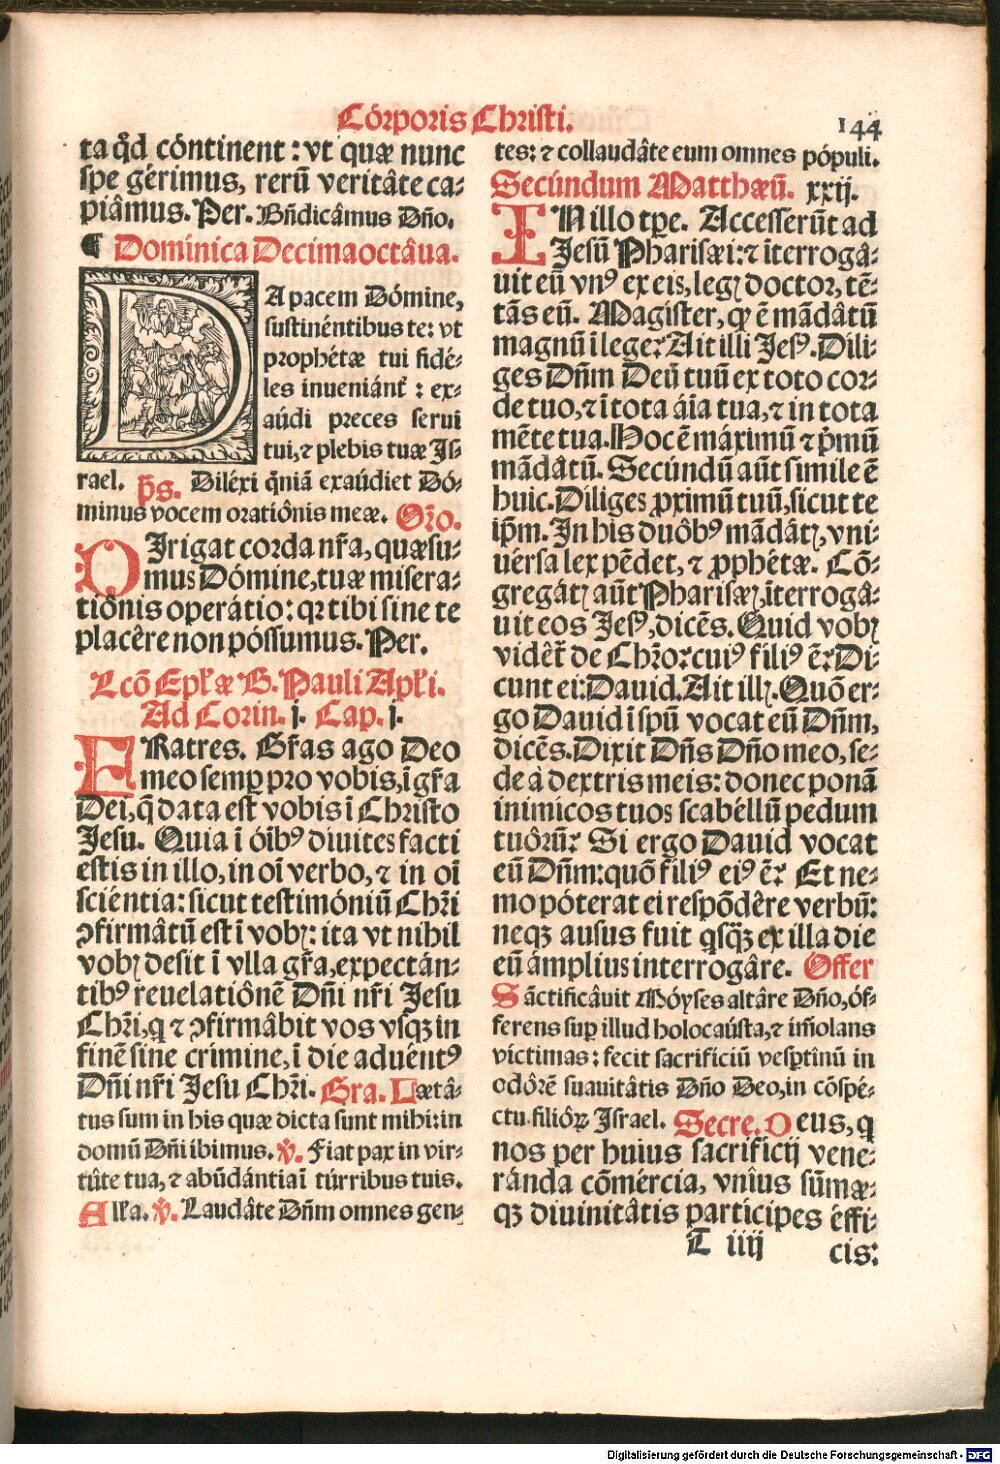 Córporis Christi.
144
ta qđ cóntinent : vt quæ nunc
spe gérimus, rerū veritâte ca-
piâmus. Per. Bñdicâmus Dño.
¶ Domínica Decimaoctâua.
DA pacem Dómine,
sustinéntibus te: vt
prophétæ tui fidé-
les inueniánt̃ : ex-
aúdi preces serui
tui, ⁊ plebis tuæ Is-
rael. p̃s. Diléxi q̃niā exaúdiet Dó-
minus vocem oratiônis meæ. Or̃o.
DIrigat corda nr̃a, quæsu-
mus Dómine, tuæ misera-
tiônis operátio: qꝛ tibi sine te
placêre non póssumus. Per.
Lcō Epl̃æ B. Pauli Apl̃i.
Ad Corin. j. Cap. j.
FRatres. Gr̃as ago Deo
meo semꝑ pro vobis, ī gr̃a
Dei, q̄ data est vobis ī Christo
Jesu. Quia ī óib⁹ diuites facti
estis in illo, in oī verbo, ⁊ in oī
sciéntia: sicut testimóniū Chr̃i
ꝯfirmâtū est ī vobꝭ: ita vt nihil
vobꝭ desit ī vlla gr̃a, expectán-
tib⁹ reuelatiônē Dñi nr̃i Jesu
Chr̃i, q̨ ⁊ ꝯfirmâbit vos vsqꝫ in
finē sine crímine, ī die aduent⁹
Dñi nr̃i Jesu Chr̃i. Gra. Lætâ-
tus sum in his quæ dicta sunt mihi: in
domū Dñi ibimus. ℣. Fiat pax in vir-
tûte tua, ⁊ abūdántia ī túrribus tuis.
All̃a. ℣. Laudâte Dñm omnes gen-
tes: ⁊ collaudâte eum omnes pópuli.
Secúndum Matthæū. xxij.
IN illo tp̃e. Accesserūt ad
Jesū Pharisæi: ⁊ īterrogâ-
uit eū vn⁹ ex eis, legꝭ doctor, tē-
tās eū. Magister, qđ ē mādâtū
magnū ī lege? Ait illi Jes⁹. Dili-
ges Dñm Deū tuū ex toto cor-
de tuo, ⁊ ī tota áīa tua, ⁊ in tota
mēte tua. Hoc ē máximū ⁊ p̃mū
mādâtū. Secúndū aūt símile ē
huic. Díliges ꝓximū tuū, sicut te
ip̃m. In his duôb⁹ mādátꝭ, vni-
uérsa lex pēdet, ⁊ ꝓphétæ. Cō-
gregátꝭ aūt Pharisæꝭ, īterrogâ-
uit eos Jes⁹, dicēs. Quid vobꝭ
vidêt̃ de Chr̃o? cui⁹ fili⁹ ē? Di-
cunt ei: Dauid. Ait illꝭ. Quō er-
go Dauid ī spū vocat eū Dñm,
dicēs. Dixit Dñs Dño meo, se-
de à dextris meis: donec ponā
inimicos tuos scabéllū pedum
tuôrū? Si ergo Dauid vocat
eū Dñm: quō fili⁹ ei⁹ ē? Et ne-
mo póterat ei respōdêre verbū:
neqꝫ ausus fuit q̨sqꝫ̄ ex illa die
eū ámplius interrogâre. Offer
Sāctificâuit Móyses altâre Dño, óf-
ferens suꝑ illud holocaústa, ⁊ im̄olans
víctimas: fecit sacrifíciū vesꝑtînū in
odôrē suauitâtis Dño Deo, in cōspé-
ctu filiôꝝ Israel. Secre. DEUS, q̨
nos per huius sacrificij vene-
ránda cōmércia, vnîus sūmæ-
qꝫ diuinitâtis partícipes éffi-
T iiij
cis:
Digitalisierung gefördert durch die Deutsche Forschungsgemeinschaft - DFG